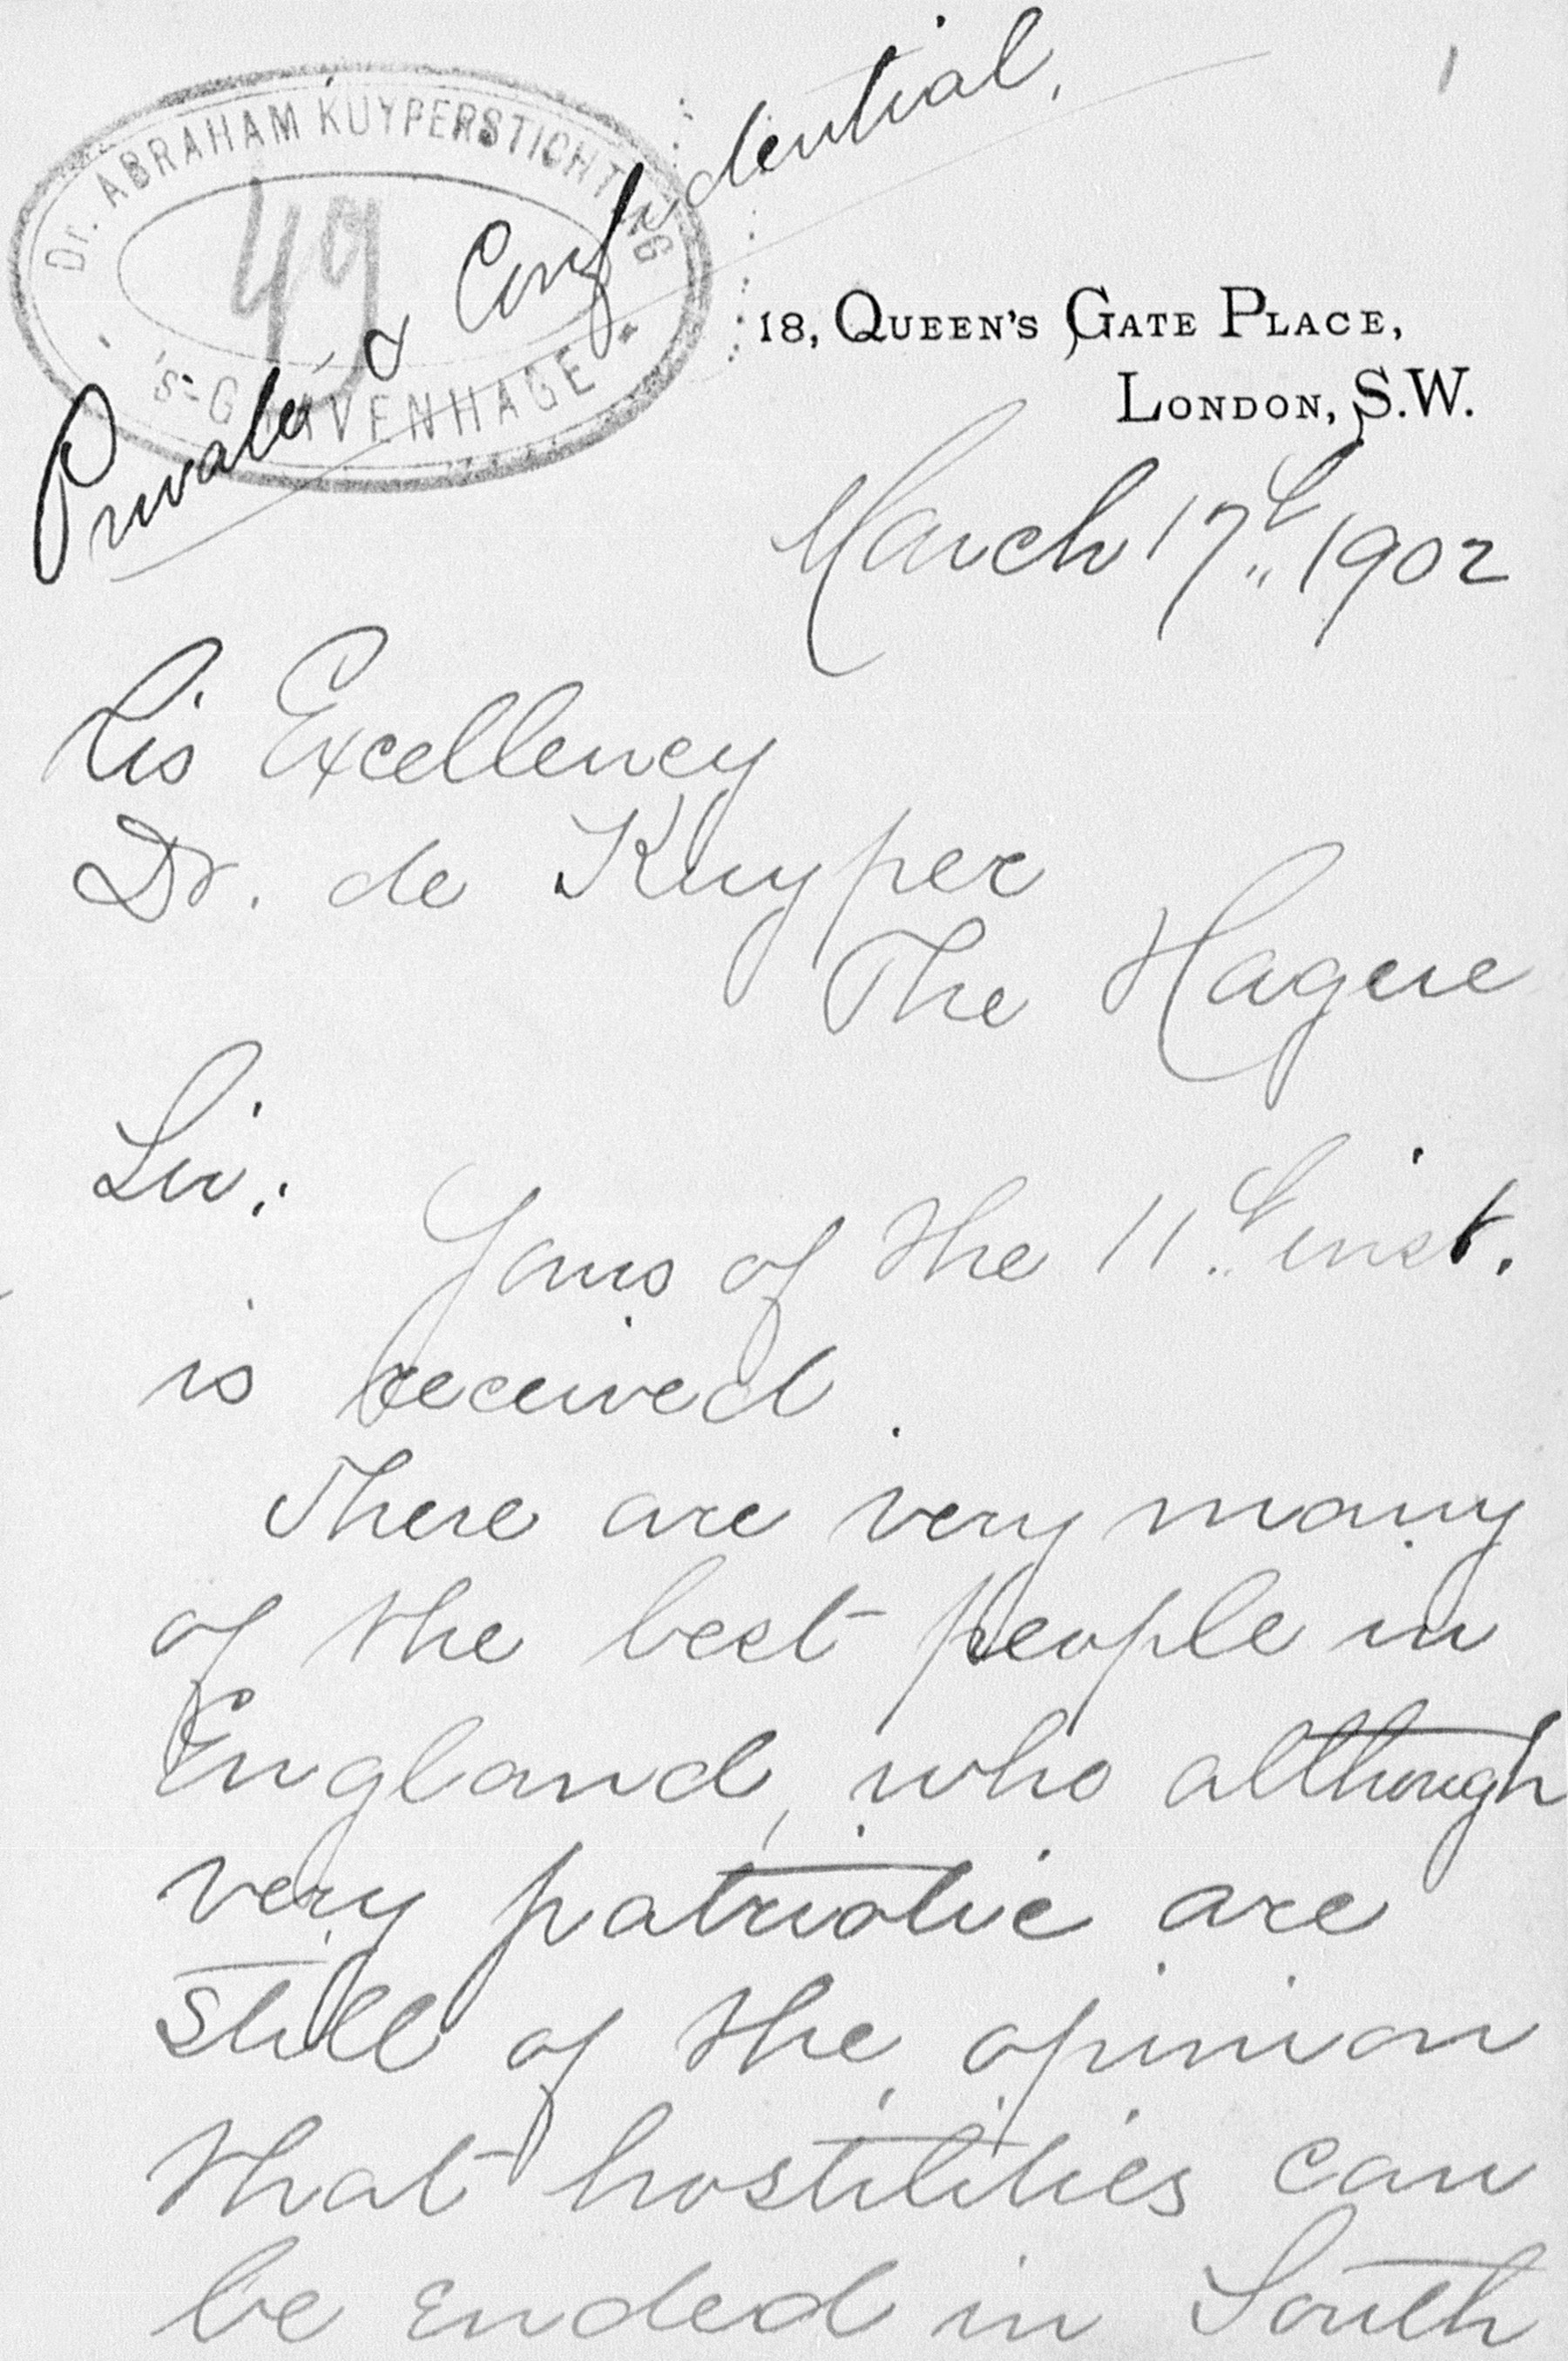 Dr. ABRAHAM KUYPERSTICHTING
49
'S-GRAVENHAGE
Private & Confidential.
1
18, QUEEN'S GATE PLACE,
LONDON, S.W.
March 17th 1902
His Excellency
Dr. de Kuyper
The Hague
Sir:
Yours of the 11th inst.
is received.
There are very many
of the best people in
England, who although
very patriotic are
still of the opinion
that hostilities can
be ended in South